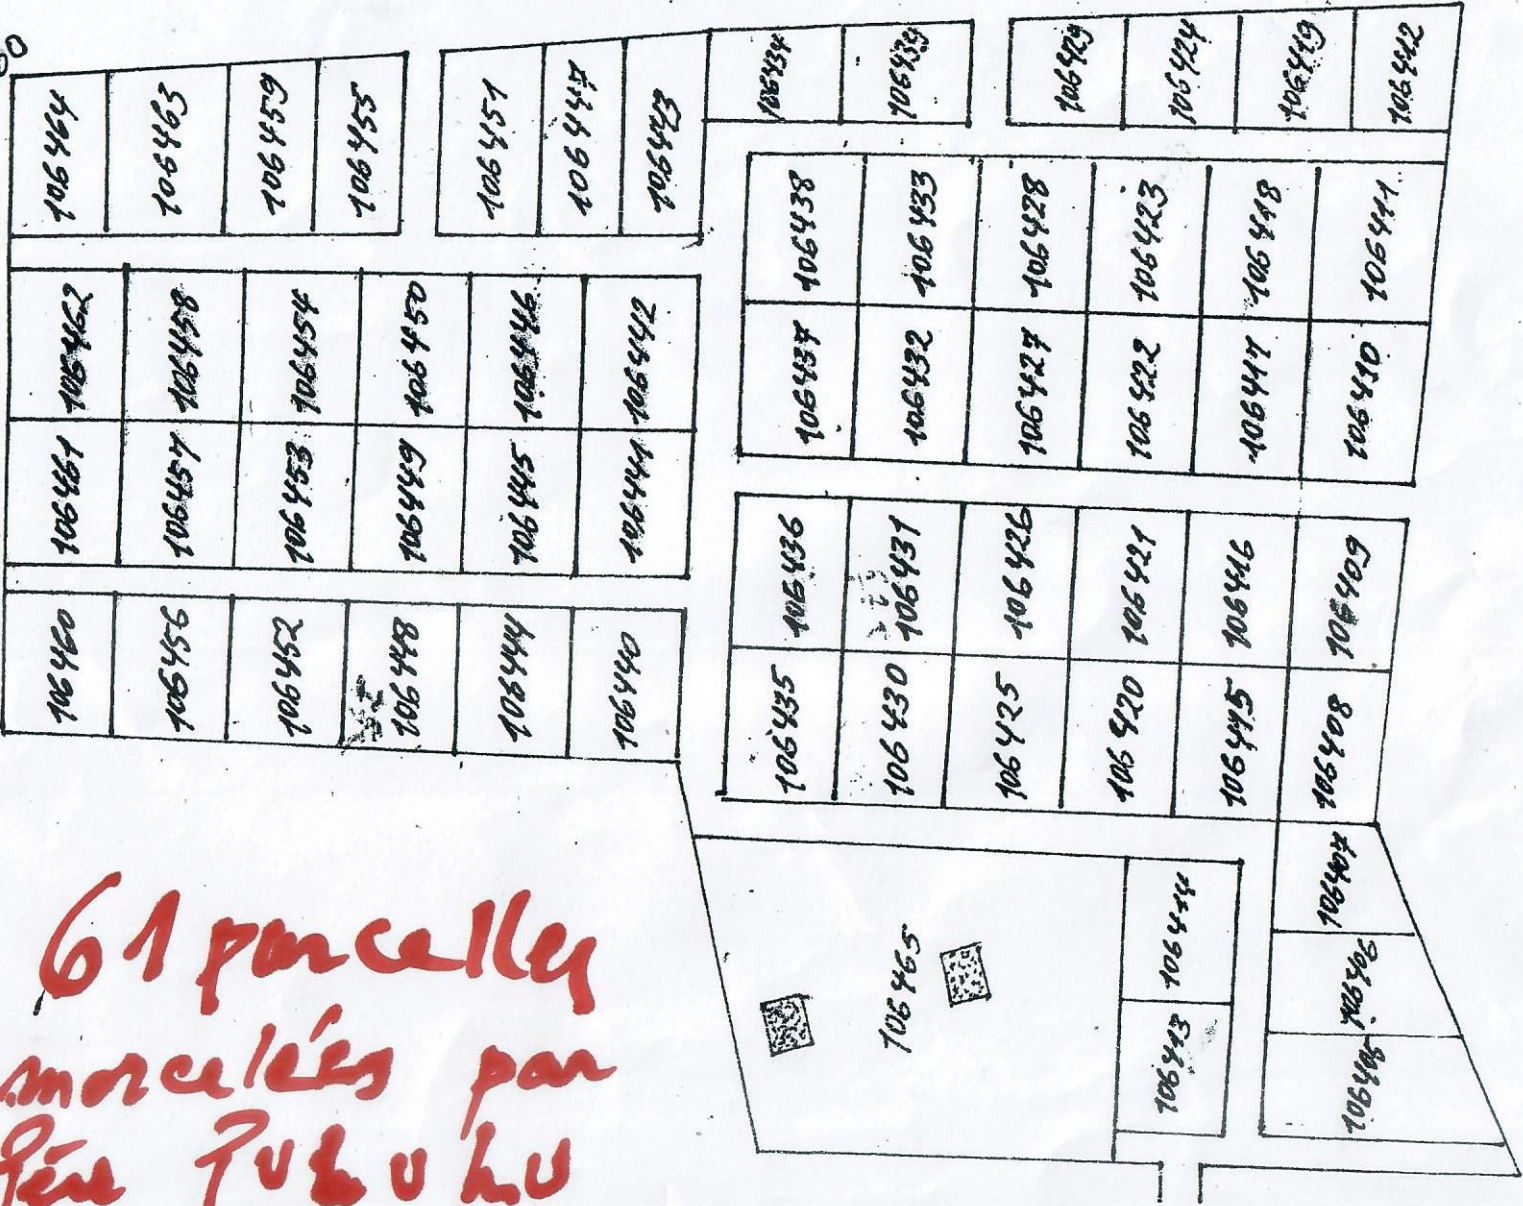 106464
106463
106459
106455
106451
106447
106443
106434
106439
106429
106424
106419
106412
106438
106433
106428
106423
106418
106411
106462
106458
106454
106450
106446
106442
106437
106432
106427
106422
106417
106410
106461
106457
106453
106449
106445
106441
106436
106431
106426
106421
106416
106409
106460
106456
106452
106448
106444
106440
106435
106430
106425
106420
106415
106408
106407
106414
106465
106406
106413
106405
61 parcelles
morcelées par
Père